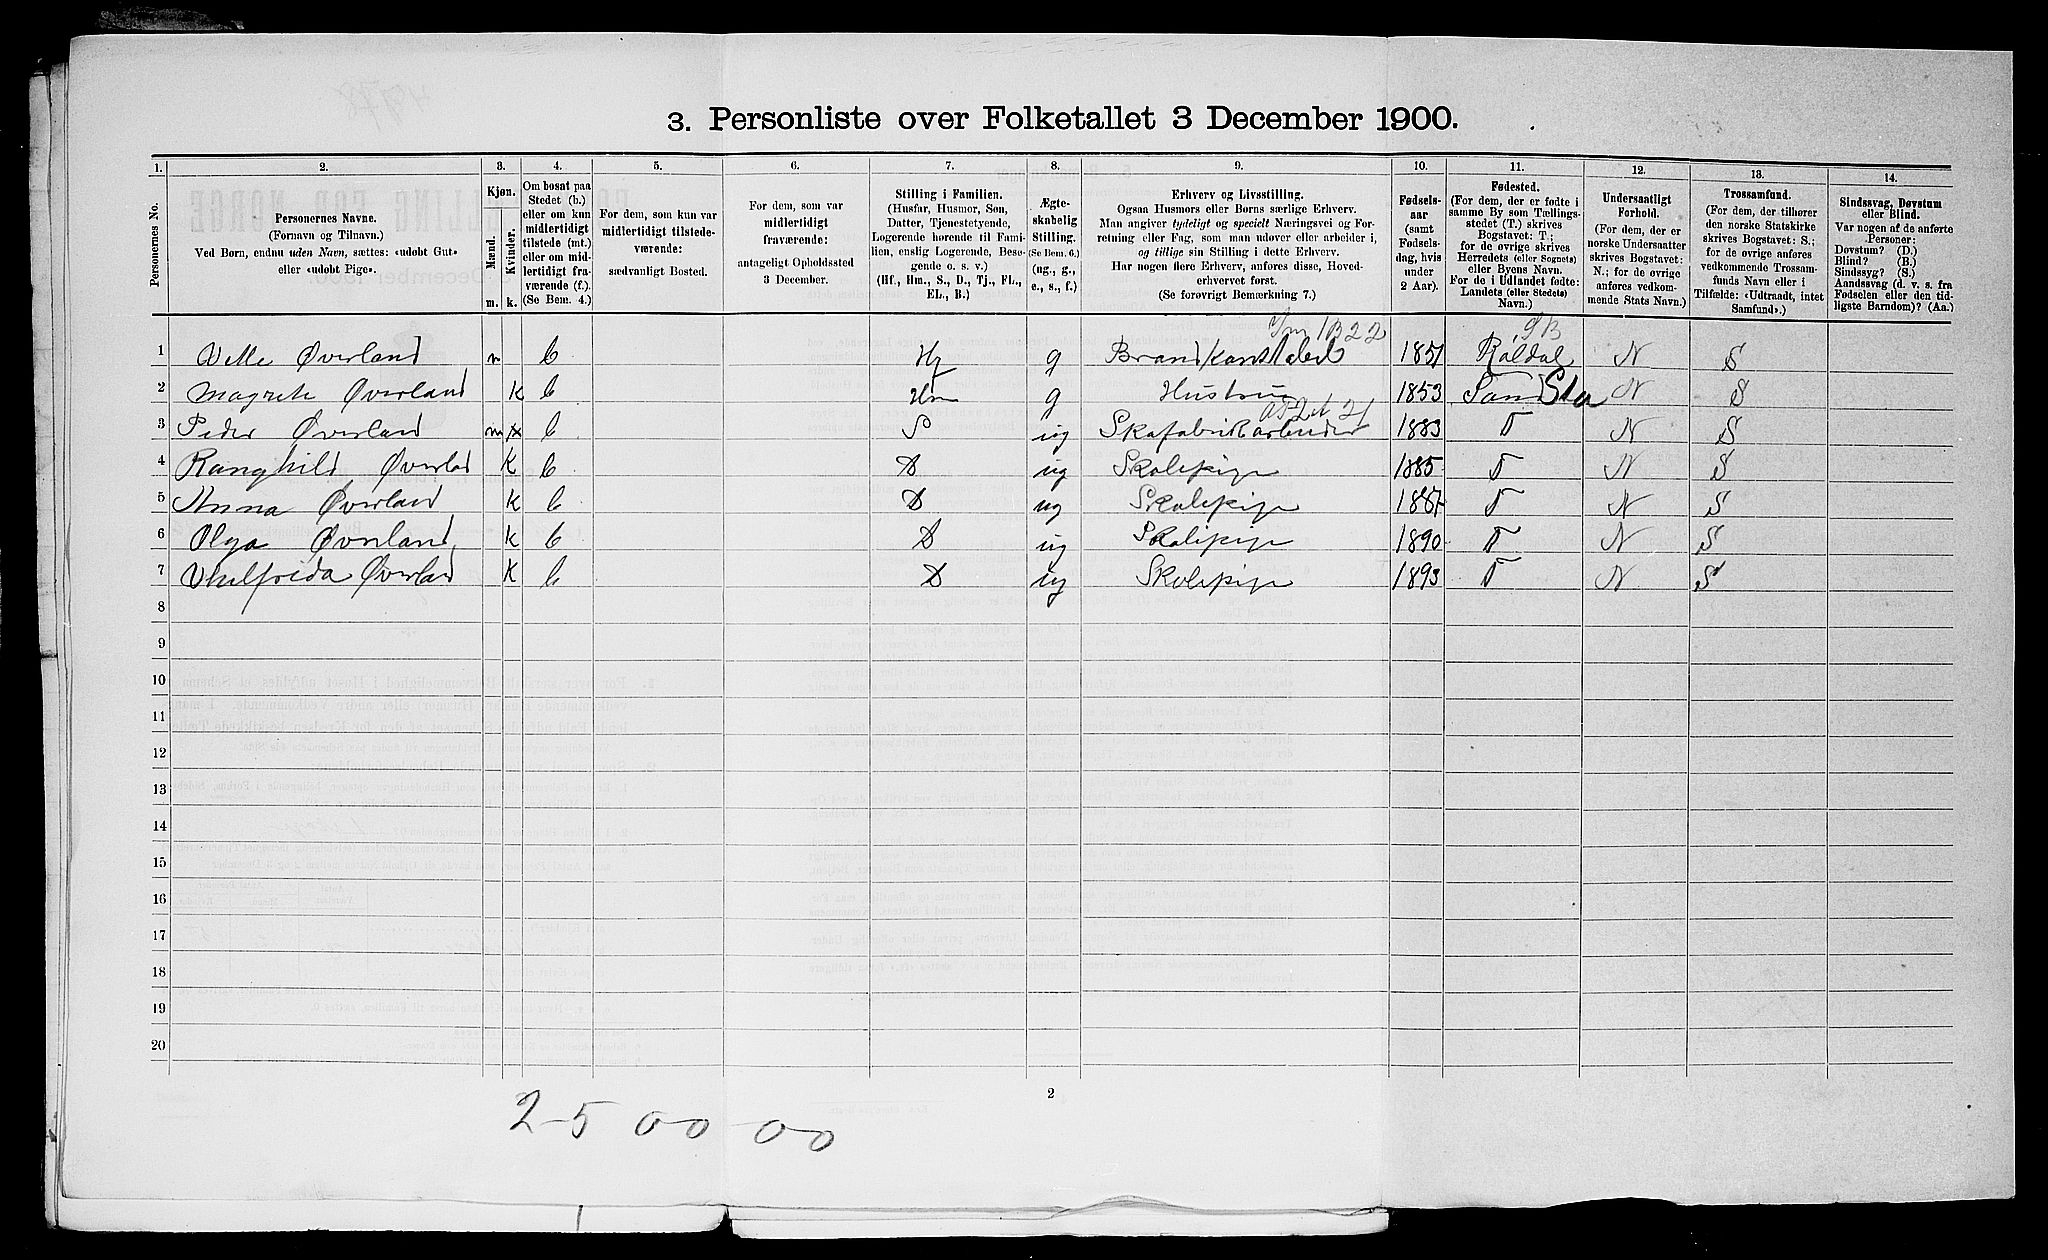 3. Personliste over Folketallet 3 December 1900.
1. 2. 3. 4. 5. 6. 7. 8. 9. 10. 11. 12. 13. 14.
Personernes No.
Personernes Navne.
(Fornavn og Tilnavn.)
Ved Børn, endnu uden Navn, sættes: «udøbt Gut»
eller «udøbt Pige».
Kjøn.
Mænd. Kvinder.
m. k.
Om bosat paa
Stedet (b.)
eller om kun
midlertidigt
tilstede (mt.)
eller om mid-
lertidigt fra-
værende (f.).
(Se Bem. 4.)
For dem, som kun var
midlertidigt tilstede-
værende:
sædvanligt Bosted.
For dem, som var
midlertidigt
fraværende:
antageligt Opholdssted
3 December.
Stilling i Familien.
(Husfar, Husmor, Søn,
Datter, Tjenestetyende,
Logerende hørende til Fami-
lien, enslig Logerende, Besø-
gende o. s. v.)
(Hf., Hm., S., D., Tj., FL.,
EL., B.)
Ægte-
skabelig
Stilling.
(Se Bem. 6.)
(ug., g.,
e., s., f.)
Erhverv og Livsstilling.
Ogsaa Husmors eller Børns særlige Erhverv.
Man angiver tydeligt og specielt Næringsvei og For-
retning eller Fag, som man udøver eller arbeider i,
og tillige sin Stilling i dette Erhverv.
Har nogen flere Erhverv, anføres disse, Hoved-
erhvervet først.
(Se forøvrigt Bemærkning 7.)
Fødsels-
aar
(samt
Fødsels-
dag, hvis
under
2 Aar).
Fødested.
(For dem, der er fødte i
samme By som Tællings-
stedet (T.) skrives
Bogstavet: T.;
for de øvrige skrives
Herredets (eller Sognets)
eller Byens Navn.
For de i Udlandet fødte:
Landets (eller Stedets)
Navn.)
Undersaatligt
Forhold.
(For dem, der er
norske Undersaatter
skrives Bogstavet:
N.; for de øvrige
anføres vedkom-
mende Stats Navn.)
Trossamfund.
(For dem, der tilhører
den norske Statskirke
skrives Bogstavet: S.;
for de øvrige anføres
vedkommende Trossam-
funds Navn eller i
Tilfælde: «Udtraadt, intet
Samfund».)
Sindssvag, Døvstum
eller Blind.
Var nogen af de anførte
Personer:
Døvstum? (D.)
Blind? (B.)
Sindssyg? (S.)
Aandssvag (d. v. s. fra
Fødselen eller den tid-
ligste Barndom)? (Aa.)
1 Øverland m b Hf g Brandkonstabel 1851 Røldal N S
2 Magrete Øverland K b Hm g Hustru 1853 Sand N S
3 Peder Øverland m b S ug 1883 T N S
4 Ranghild Øverlad K b D ug Skolepige 1885 T N S
5 Anna Øverland K b D ug Skolepige 1887 T N S
6 Olga Øverland K b D ug Skolepige 1890 T N S
7 Øverlad K b D ug Skolepige 1893 T N S
8
9
10
11
12
13
14
15
16
17
18
19
20
2
2-5 00-00